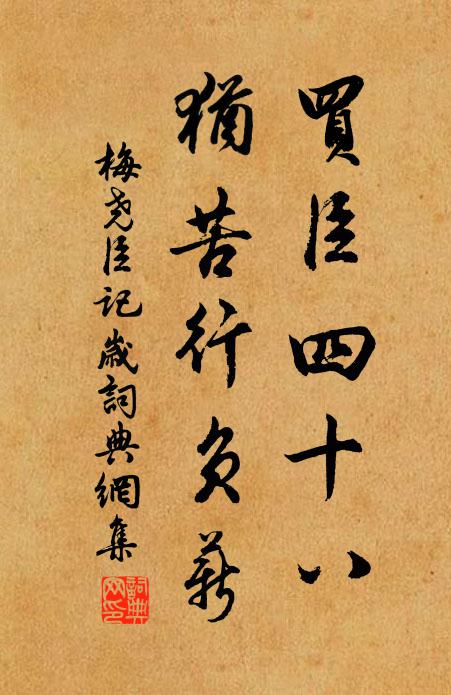 買臣四十八
猶苦行負薪
梅堯臣記歲詞典網集
詞典網印